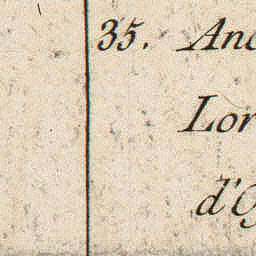 35. Anc
Lor
d'O